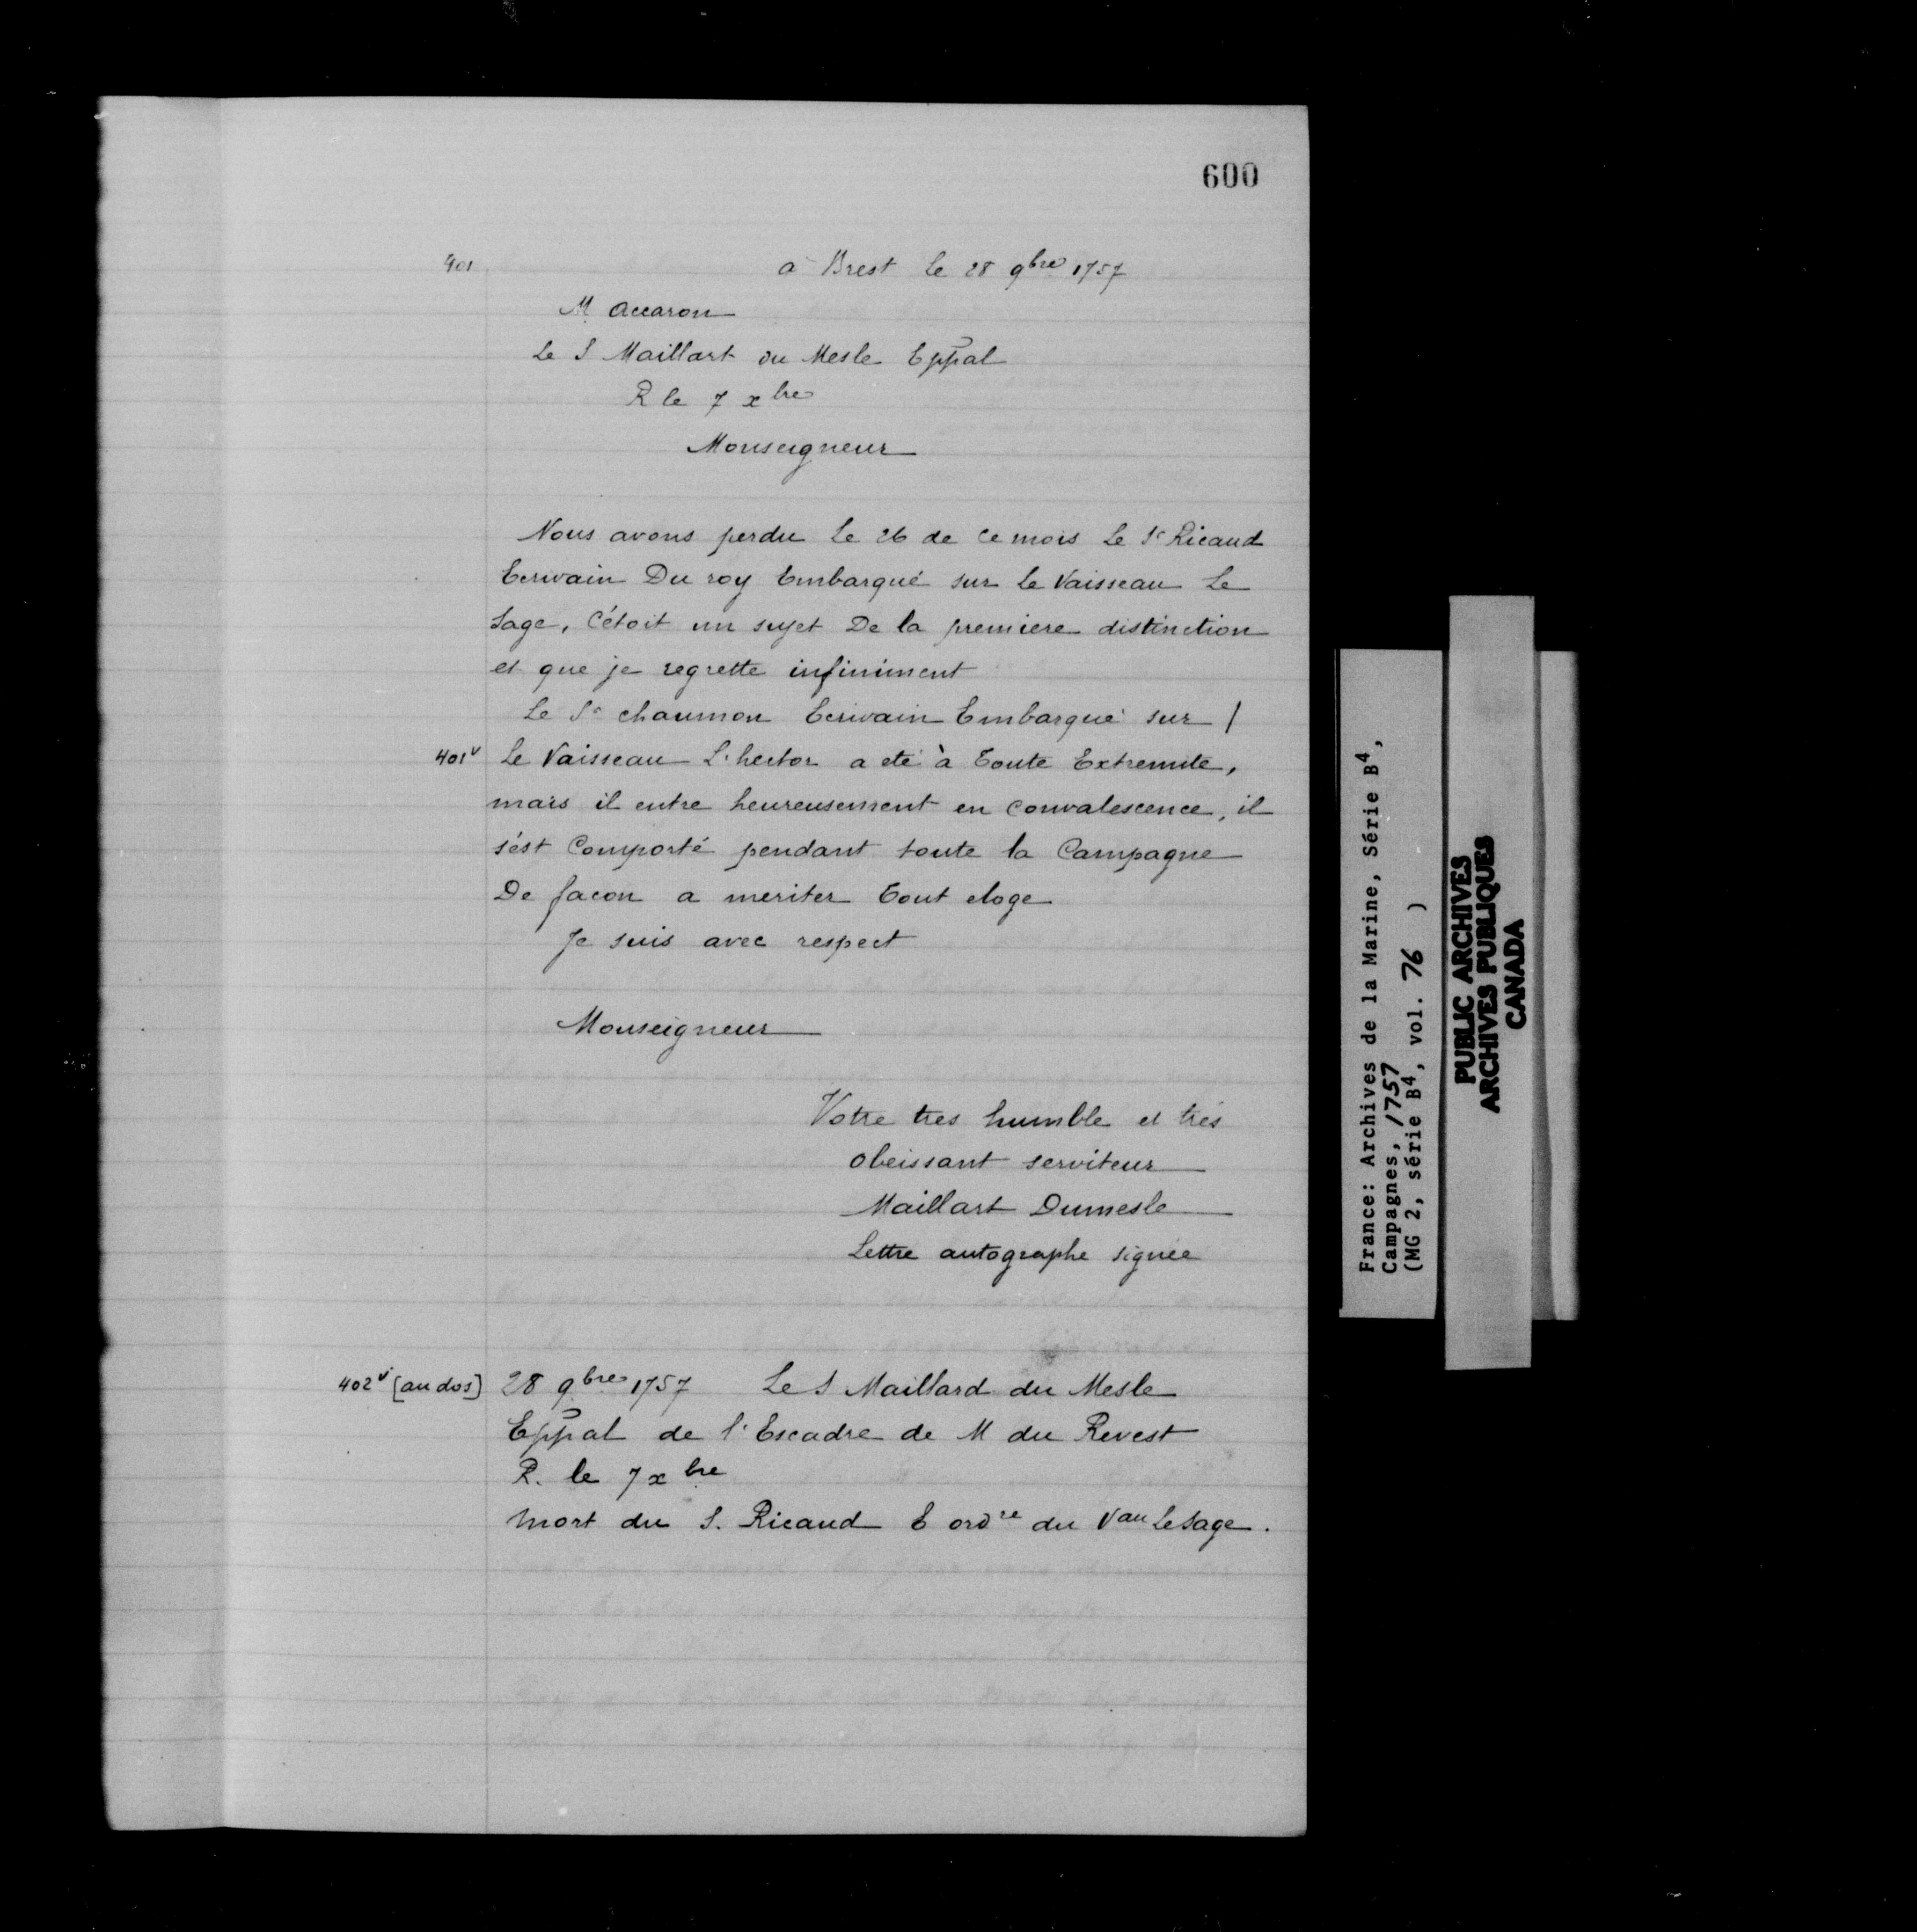 600
401 à Brest le 28 9bre 1757
M Accaron
Le S Maillart du Mesle Eppal
R le 7 xbre
Monseigneur
Nous avons perdu Le 26 de ce mois Le Sr Ricaud
Ecrivain Du roy Embarqué sur Le Vaisseau Le
Sage, C'étoit un sujet De la premiere distinction
et que je regrette infiniment
Le Sr chaumon Ecrivain Embarqué sur /
401v Le Vaisseau L'hector a eté à Toute Extremite,
mais il entre heureusement en convalescence, il
s'ést Comporté pendant toute la Campagne
De facon a meriter Tout eloge
Je suis avec respect
Monseigneur
Votre tres humble et très
obeissant serviteur
Maillart Dumesle
Lettre autographe signée
402v [au dos] 28 9bre 1757 Le S Maillard du Mesle
Eppal de l'Escadre de M du Revest
R. le 7 xbre
Mort du S. Ricaud E ordre du Vau Le Sage.
France: Archives de la Marine, Série B4,
Campagnes, 1757
(MG 2, série B4, vol. 76 )
PUBLIC ARCHIVES
ARCHIVES PUBLIQUES
CANADA